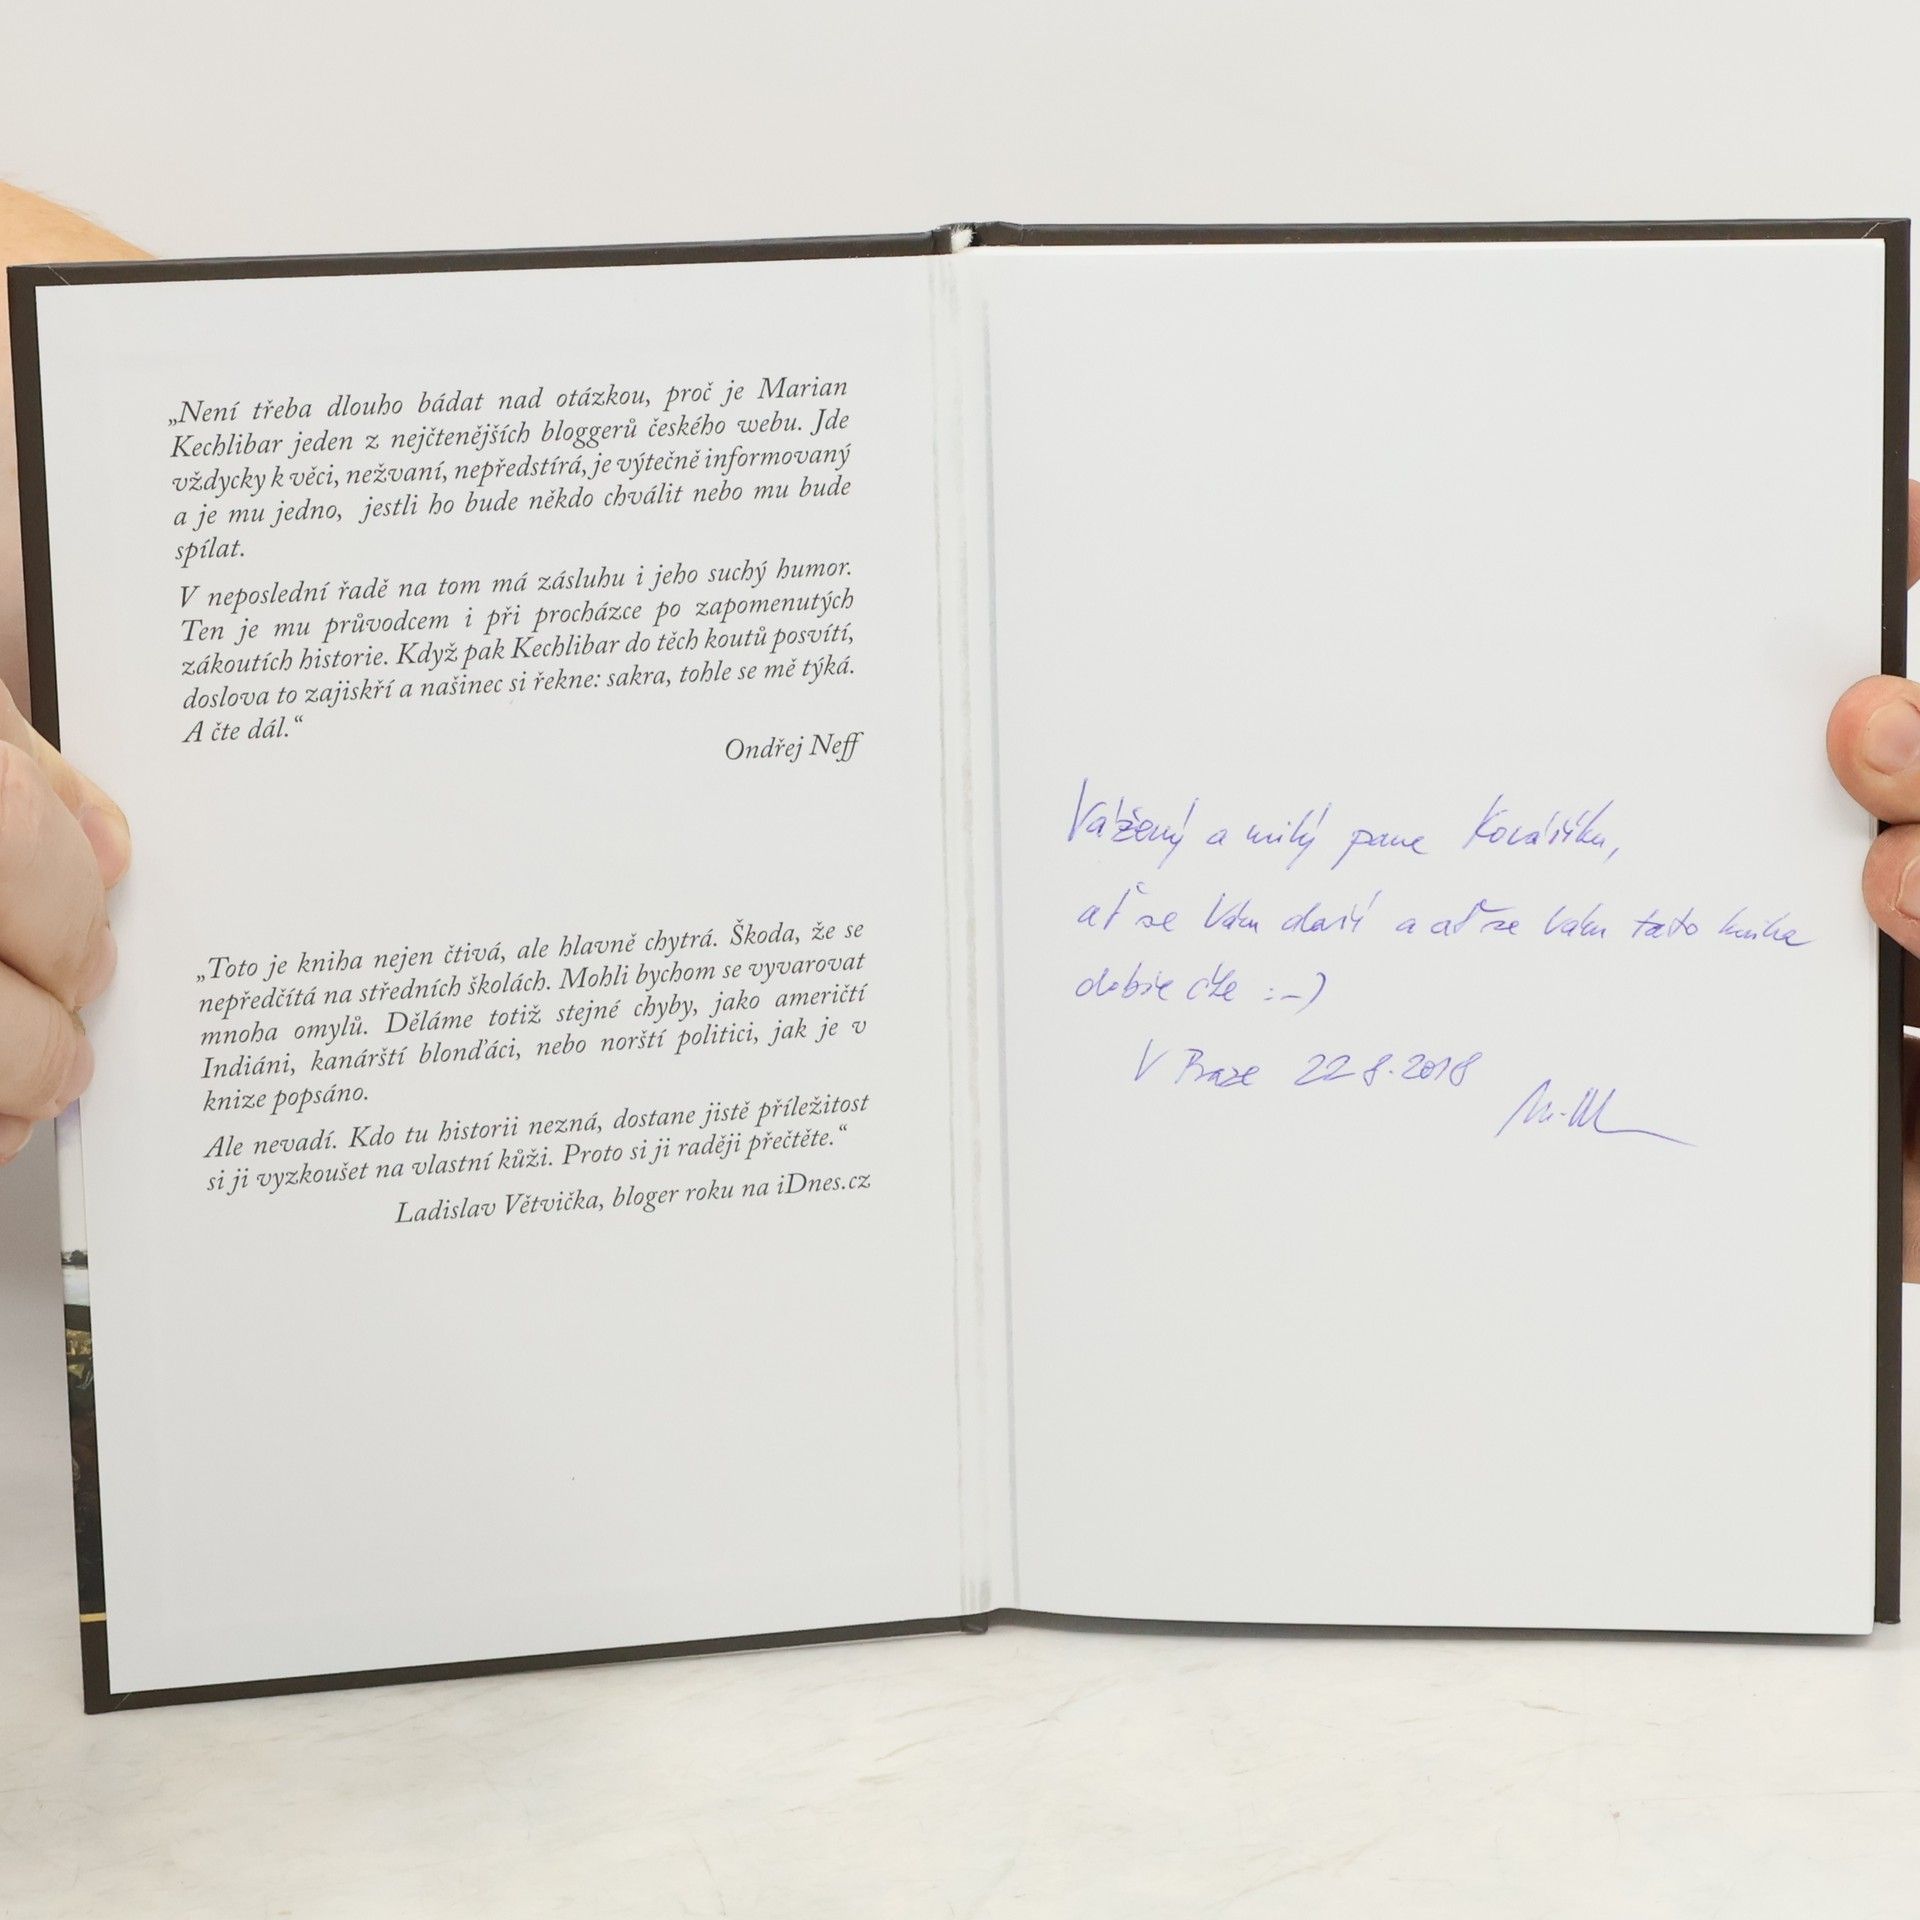 „Není třeba dlouho bádat nad otázkou, proč je Marian
Kechlibar jeden z nejčtenějších bloggerů českého webu. Jde
vždycky k věci, nežvaní, nepředstírá, je výtečně informovaný
a je mu jedno, jestli ho bude někdo chválit nebo mu bude
spílat.
V neposlední řadě na tom má zásluhu i jeho suchý humor.
Ten je mu průvodcem i při procházce po zapomenutých
zákoutích historie. Když pak Kechlibar do těch koutů posvítí,
doslova to zajiskří a našinec si řekne: sakra, tohle se mě týká.
A čte dál.“
Ondřej Neff
„Toto je kniha nejen čtivá, ale hlavně chytrá. Škoda, že se
nepředčítá na středních školách. Mohli bychom se vyvarovat
mnoha omylů. Děláme totiž stejné chyby, jako američtí
Indiáni, kanárští blonďáci, nebo norští politici, jak je v
knize popsáno.
Ale nevadí. Kdo tu historii nezná, dostane jistě příležitost
si ji vyzkoušet na vlastní kůži. Proto si ji raději přečtěte.“
Ladislav Větvička, bloger roku na iDnes.cz
Vážený a milý pane Kováříku,
ať se Vám daří a ať se Vám tato kniha
dobře čte :-)
V Praze 22.8.2018